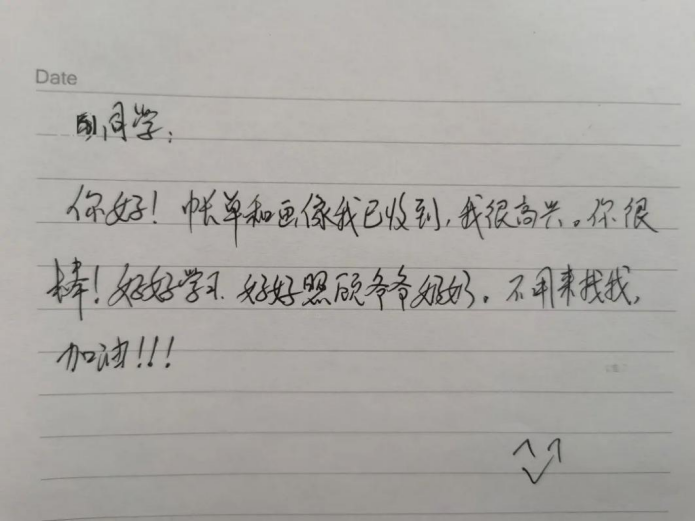 Date
田同学：
你好！帐单和画像我已收到，我很高兴。你很
棒！好好学习.好好照顾爷爷奶奶。不用来找我，
加油！！！